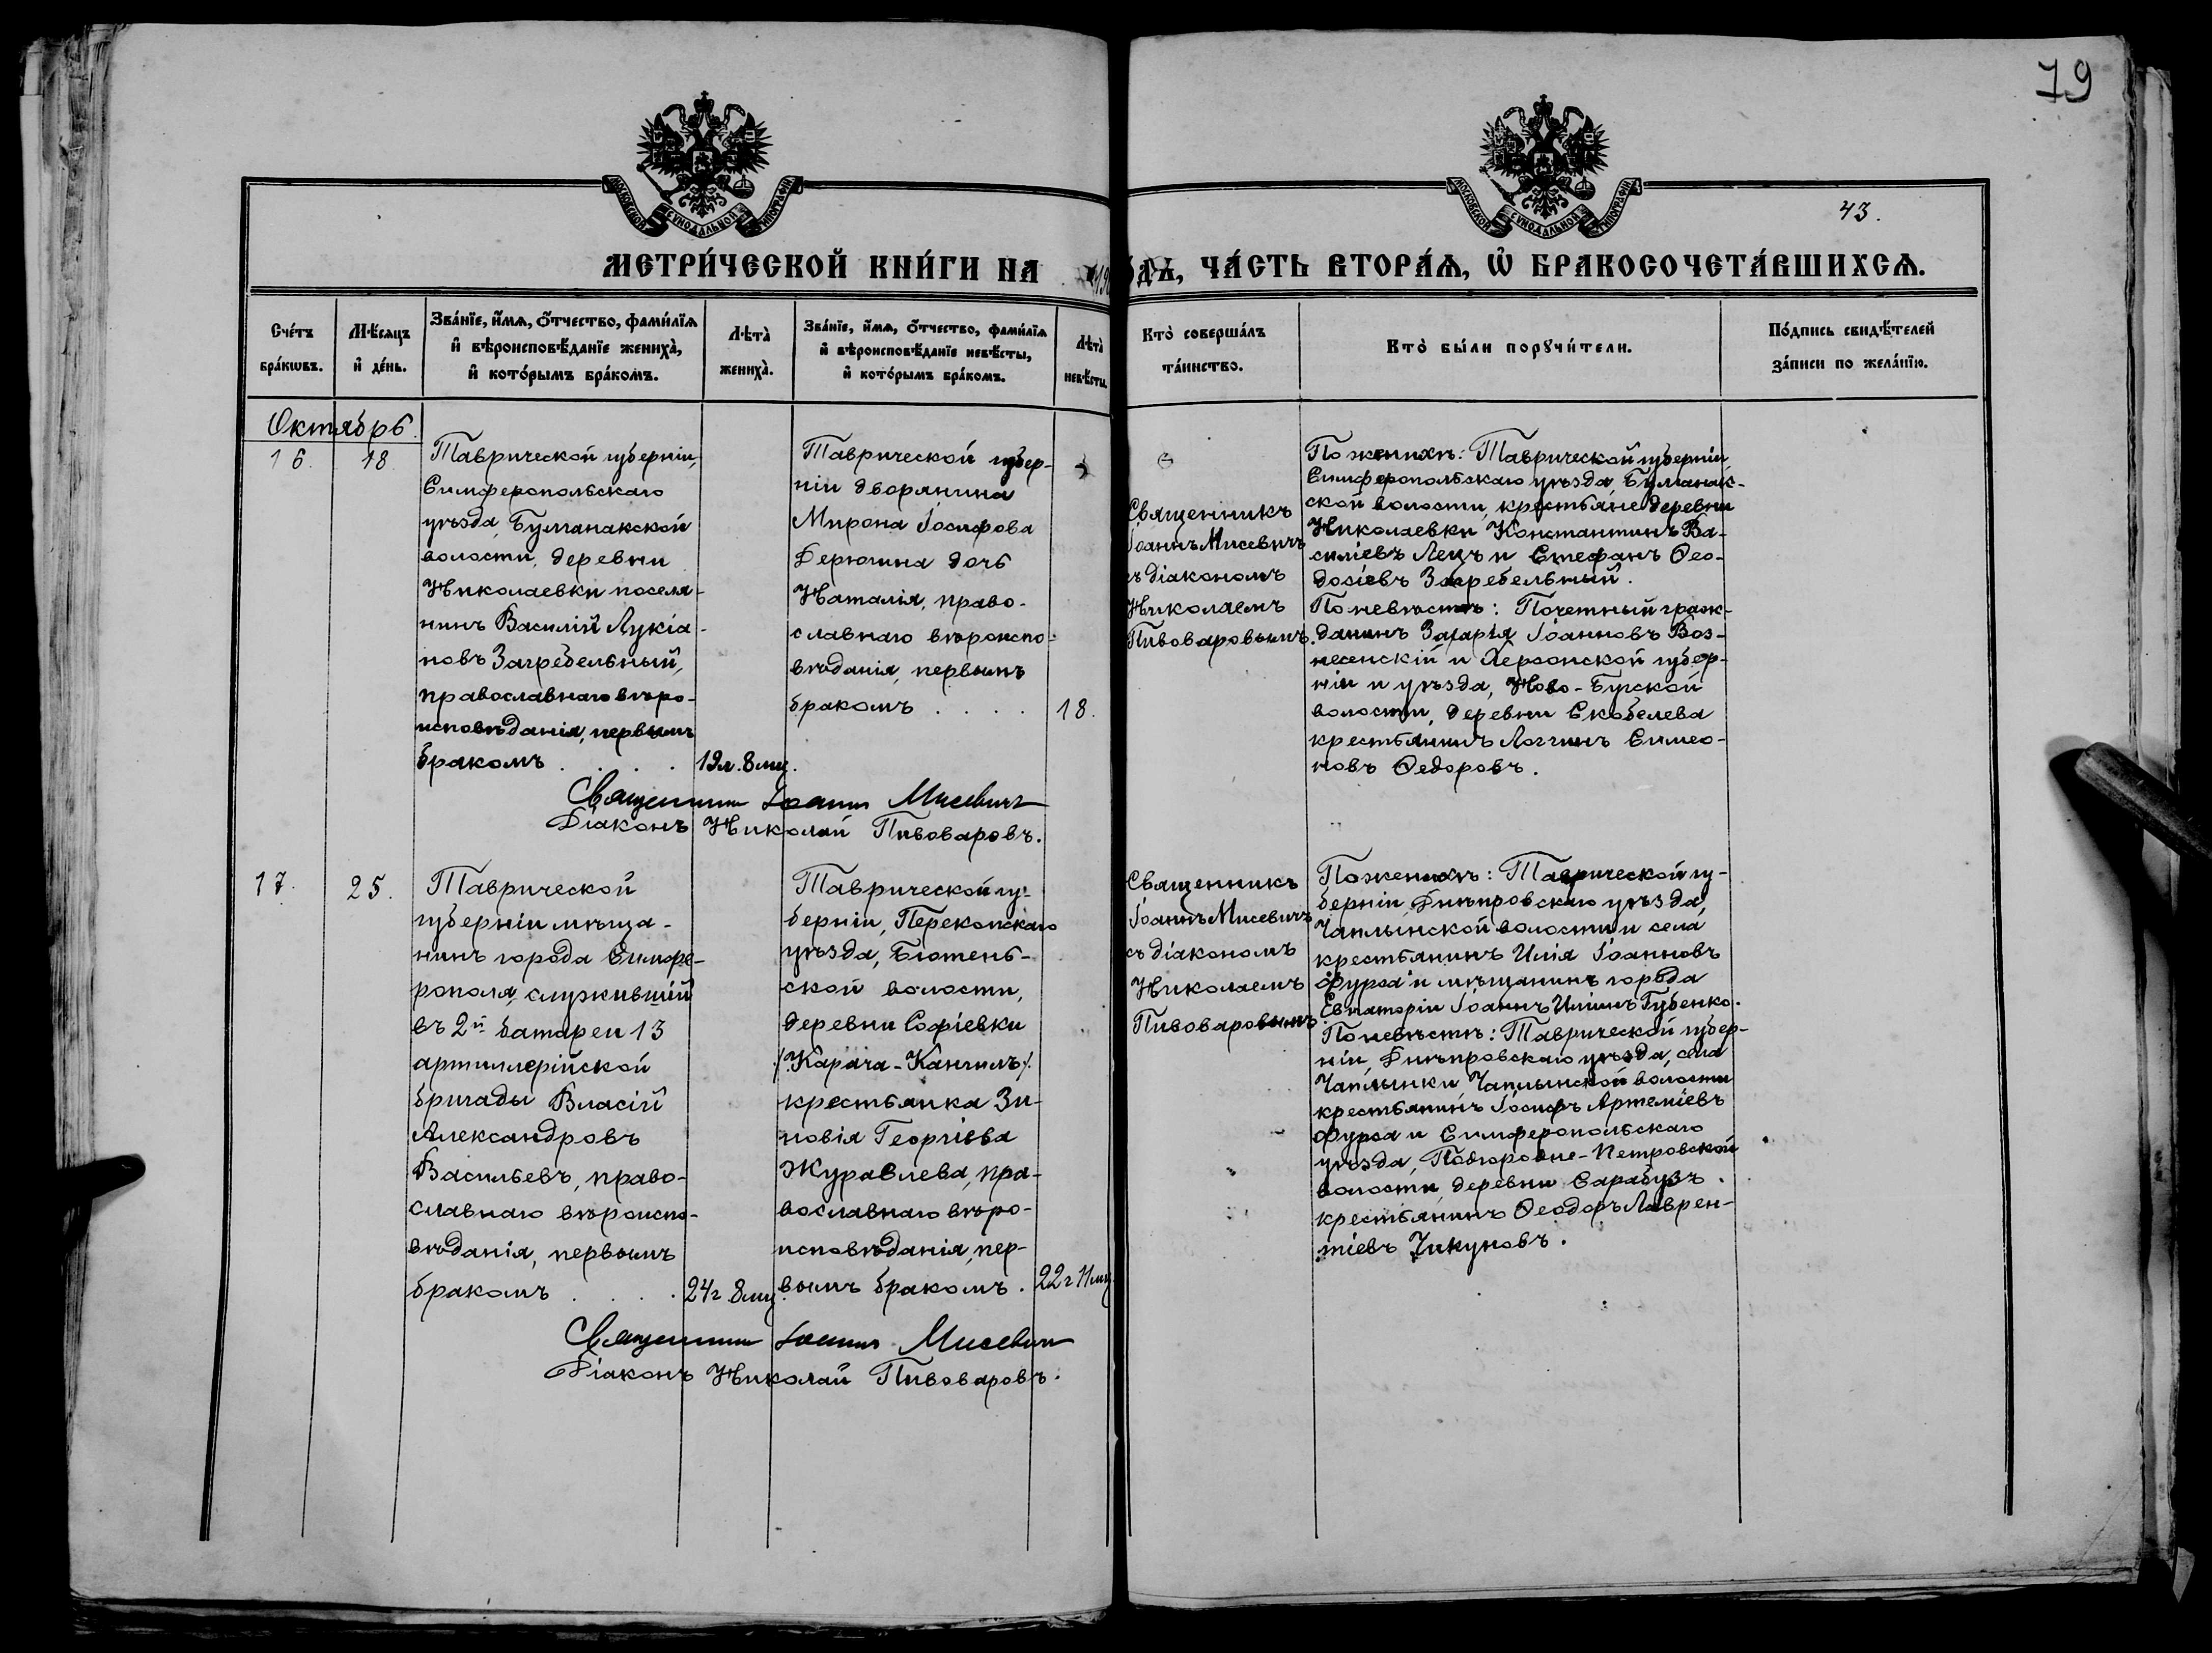 79
МОСКОВСКОЙ СУНОДАЛЬНОЙ ТИПОГРАФІИ
МОСКОВСКОЙ СУНОДАЛЬНОЙ ТИПОГРАФІИ
43.
МЕТРИ́ЧЕСКОЙ КНИ́ГИ НА
ЧА́СТЬ ВТОРА́Ѧ, Ѽ БРАКОСОЧЕТА́ВШИХСѦ.
Сче́тъ
бра́кѡвъ.
Мѣ́сяцъ
и҆ де́нь.
Зва́нїе, и҆́мѧ, ѻ҆́тчество, фами́лїѧ
и҆ вѣроисповѣ́данїе жениха̀,
и҆ кото́рымъ бра́комъ.
Лѣта̀
жениха̀.
Зва́нїе, и҆́мѧ, ѻ҆́тчество, фами́лїѧ
и҆ вѣроисповѣ́данїе невѣ́сты,
и҆ кото́рымъ бра́комъ.
Лѣта̀
невѣ́сты.
Кто̀ соверша́лъ
та́инство.
Кто̀ бы́ли порꙋчи́тели.
По́дпись свидѣ́телей
за́писи по жела́нїю.
Октябрь.
16.
18.
Таврической губерніи,
Симферопольскаго
уѣзда, Булганакской
волости, деревни
Николаевки поселя-
нинъ Василій Лукіа-
новъ Загребельный,
православнаго вѣро-
исповѣданія, первымъ
бракомъ . . . .
19л. 8мц.
Таврической губер-
ніи дворянина
Мирона Іосифова
Дерюгина дочь
Наталія, право-
славнаго вѣроиспо-
вѣданія, первымъ
бракомъ . . . .
18.
Священникъ
Іоаннъ Мисевичъ
съ діакономъ
Николаемъ
Пивоваровымъ.
По женихѣ: Таврической губерніи
Симферопольскаго уѣзда, Булганак-
ской волости, крестьяне деревни
Николаевки Константинъ Ва-
силіевъ Лецъ и Стефанъ Ѳео-
досіевъ Загребельный.
По невѣстѣ: Почетный граж-
данинъ Захарія Іоанновъ Воз-
несенскій и Херсонской губер-
ніи и уѣзда, Ново-Бугской
волости, деревни Скобелева
крестьянинъ Логгинъ Симео-
новъ Ѳедоровъ.
Священникъ Іоаннъ Мисевичъ
Діаконъ Николай Пивоваровъ.
17.
25.
Таврической
губерніи мѣща-
нинъ города Симфе-
рополя, служившій
въ 2й батареи 13
артиллерійской
бригады Власій
Александровъ
Васильевъ, право-
славнаго вѣроиспо-
вѣданія, первымъ
бракомъ . . . .
24г. 8мц.
Таврической гу-
берніи, Перекопскаго
уѣзда, Бютень-
ской волости,
деревни Софіевки
/Карача-Кангилъ/
крестьянка Зи-
новія Георгіева
Журавлева, пра-
вославнаго вѣро-
исповѣданія, пер-
вымъ бракомъ.
22г 11мц
Священникъ
Іоаннъ Мисевичъ
съ діакономъ
Николаемъ
Пивоваровымъ
По женихѣ: Таврической гу-
берніи, Днѣпровскаго уѣзда,
Чаплынской волости и села
крестьянинъ Илія Іоанновъ
Фурса и мѣщанинъ города
Евпаторіи Іоаннъ Иліинъ Губенко.
По невѣстѣ: Таврической губер-
ніи, Днѣпровскаго уѣзда, села
Чаплынки Чаплынской волости
крестьянинъ Іосифъ Артеміевъ
Фурса и Симферопольскаго
уѣзда, Подгородне-Петровской
волости, деревни Сарабузъ
крестьянинъ Ѳеодоръ Лаврен-
тіевъ Чикуновъ.
Священникъ Іоаннъ Мисевичъ
Діаконъ Николай Пивоваровъ.